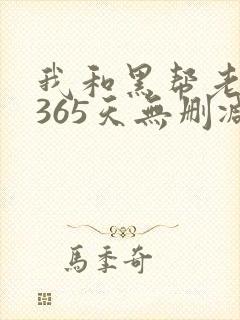 我和黑帮老
365天無删减
馬季奇